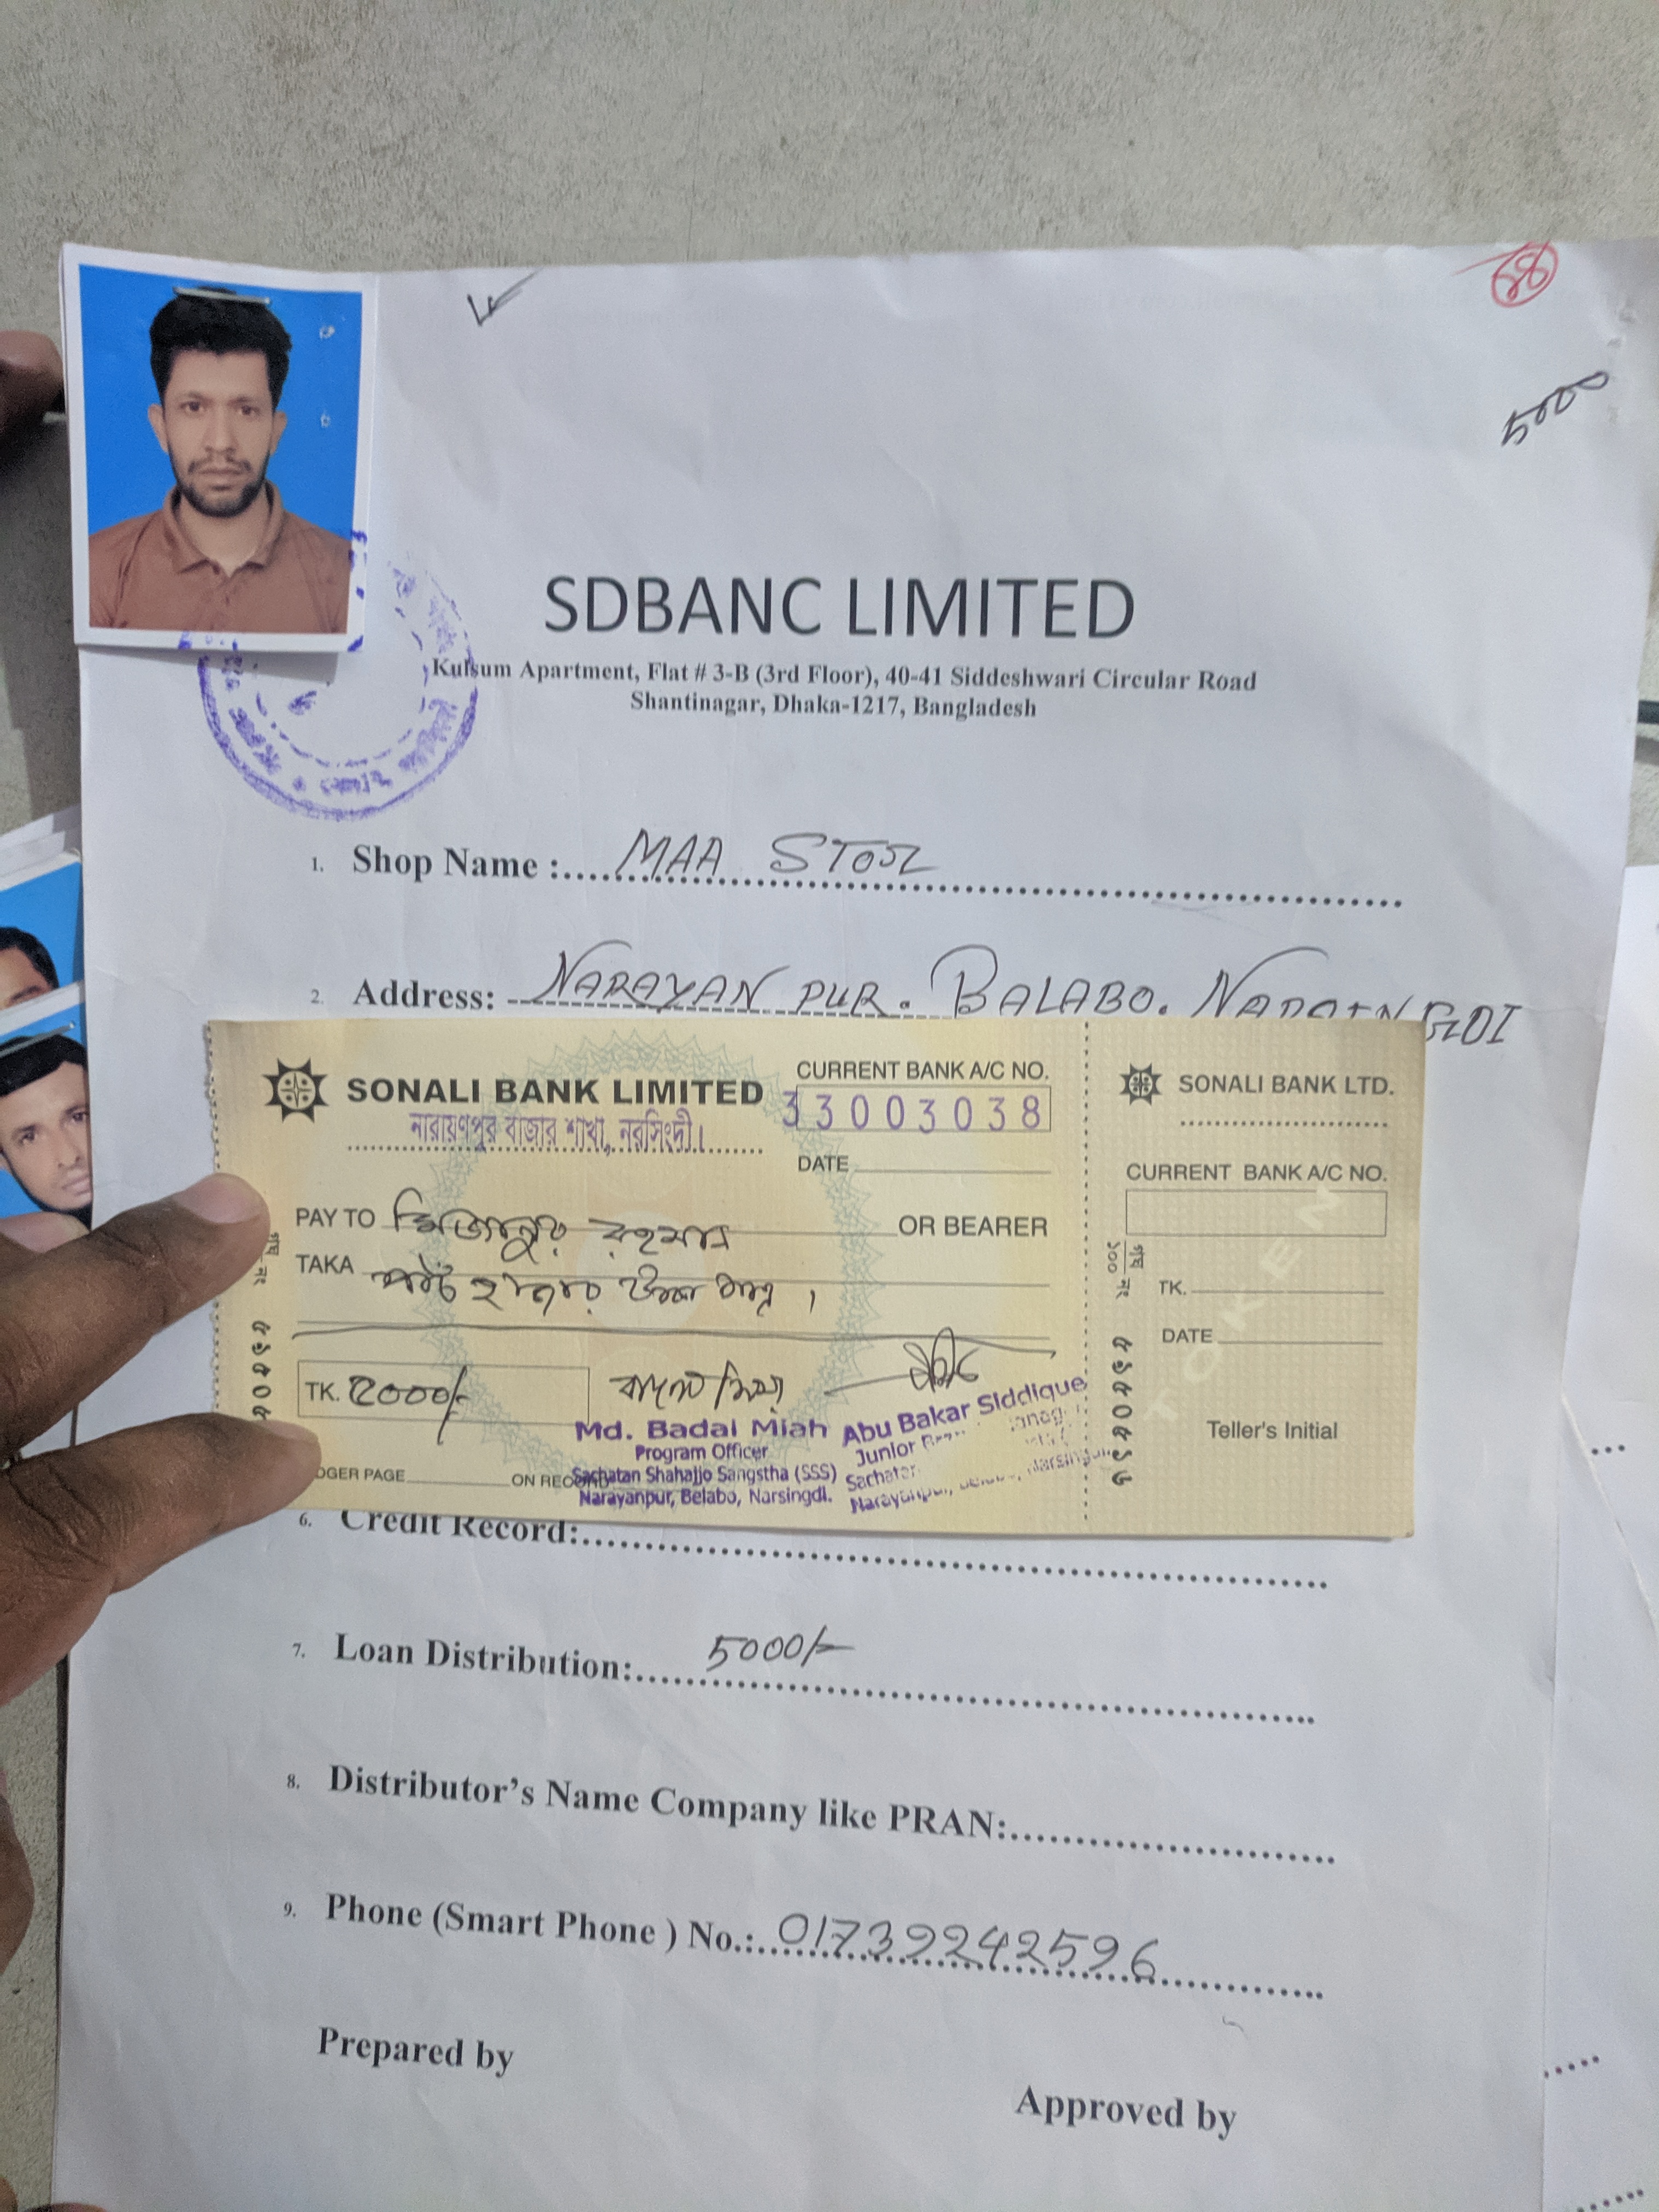 5000
SDBANC LIMITED
Kulsum Apartment, Flat # 3-B (3rd Floor), 40-41 Siddeshwari Circular Road
Shantinagar, Dhaka-1217, Bangladesh
1. Shop Name : MAA STOR
2. Address: NARAYAN PUR. BALABO. NARSINGDI
SONALI BANK LIMITED
নারায়ণপুর বাজার শাখা, নরসিংদী।
CURRENT BANK A/C NO.
33003038
DATE
PAY TO মিজানুর রহমান OR BEARER
TAKA পাঁচ হাজার টাকা মাত্র।
TK. ৫০০০/-
Md. Badal Miah
Program Officer
Sachatan Shahajjo Sangstha (SSS)
Narayanpur, Belabo, Narsingdi.
Abu Bakar Siddique
Junior
Narayanpur, Belabo, Narsingdi
PAGE ON
SONALI BANK LTD.
CURRENT BANK A/C NO.
TK.
DATE
TOKEN
Teller's Initial
6. Credit Record:
7. Loan Distribution: 5000/-
8. Distributor's Name Company like PRAN:
9. Phone (Smart Phone ) No.: 01739242596
Prepared by
Approved by